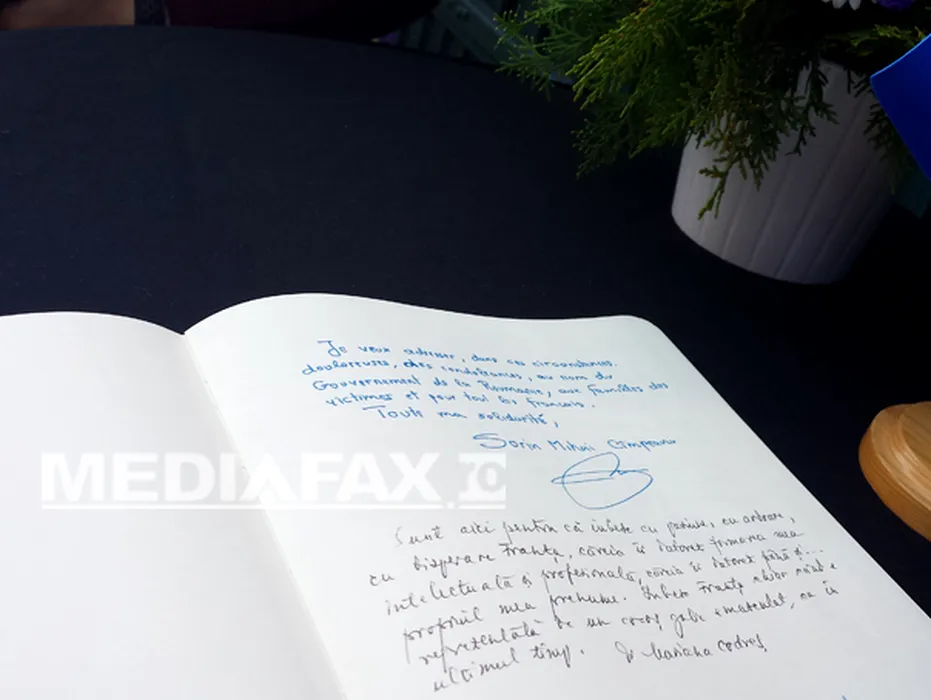 Je veux adresser, dans ces circonstances
douloureuses, des condoléances, au nom du
Gouvernement de la Roumanie, aux familles des
victimes et pour tout les français.
Toute ma solidarité,
Sorin Mihai Cîmpeanu
MEDIAFAX
Sunt aici pentru că iubesc cu pasiune, cu ardoare,
cu disperare Franța, căreia îi datorez formarea mea
intelectuală și profesională, căreia îi datorez până și...
propriul meu prenume. Iubesc Franța chiar când e
reprezentată de un cocoș galic emasculat, ca în
ultimul timp. Mariana